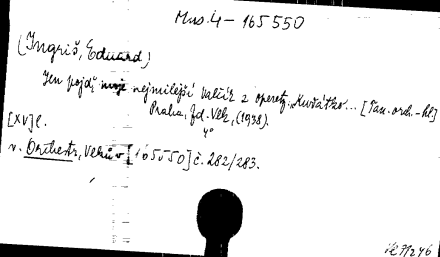 Mus.4-165550
(Ingriš, Eduard)
Jen pojď, moje nejmilejší Valčík z operety „Kuřátko"... [Tan. orch. - hl]
Praha, Jd. Vlk, (1938).
4°
[XV]l.
v. Orchestr, Vlkův [165550] č. 282/283.